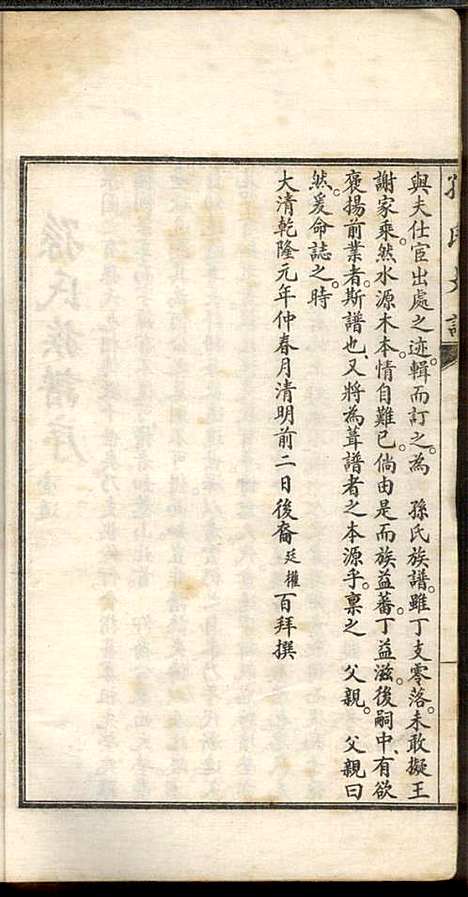 孫氏族譜
與夫仕宦出處之迹。輯而訂之。為　孫氏族譜。雖丁支零落。未敢擬王
謝家乘。然水源木本。情自難已。倘由是而族益蕃。丁益滋。後嗣中、有欲
褒揚前業者。斯譜也、又將為葺譜者之本源乎。稟之　父親。父親曰
然。爰命誌之。時
大清乾隆元年仲春月清明前二日後裔廷權百拜撰